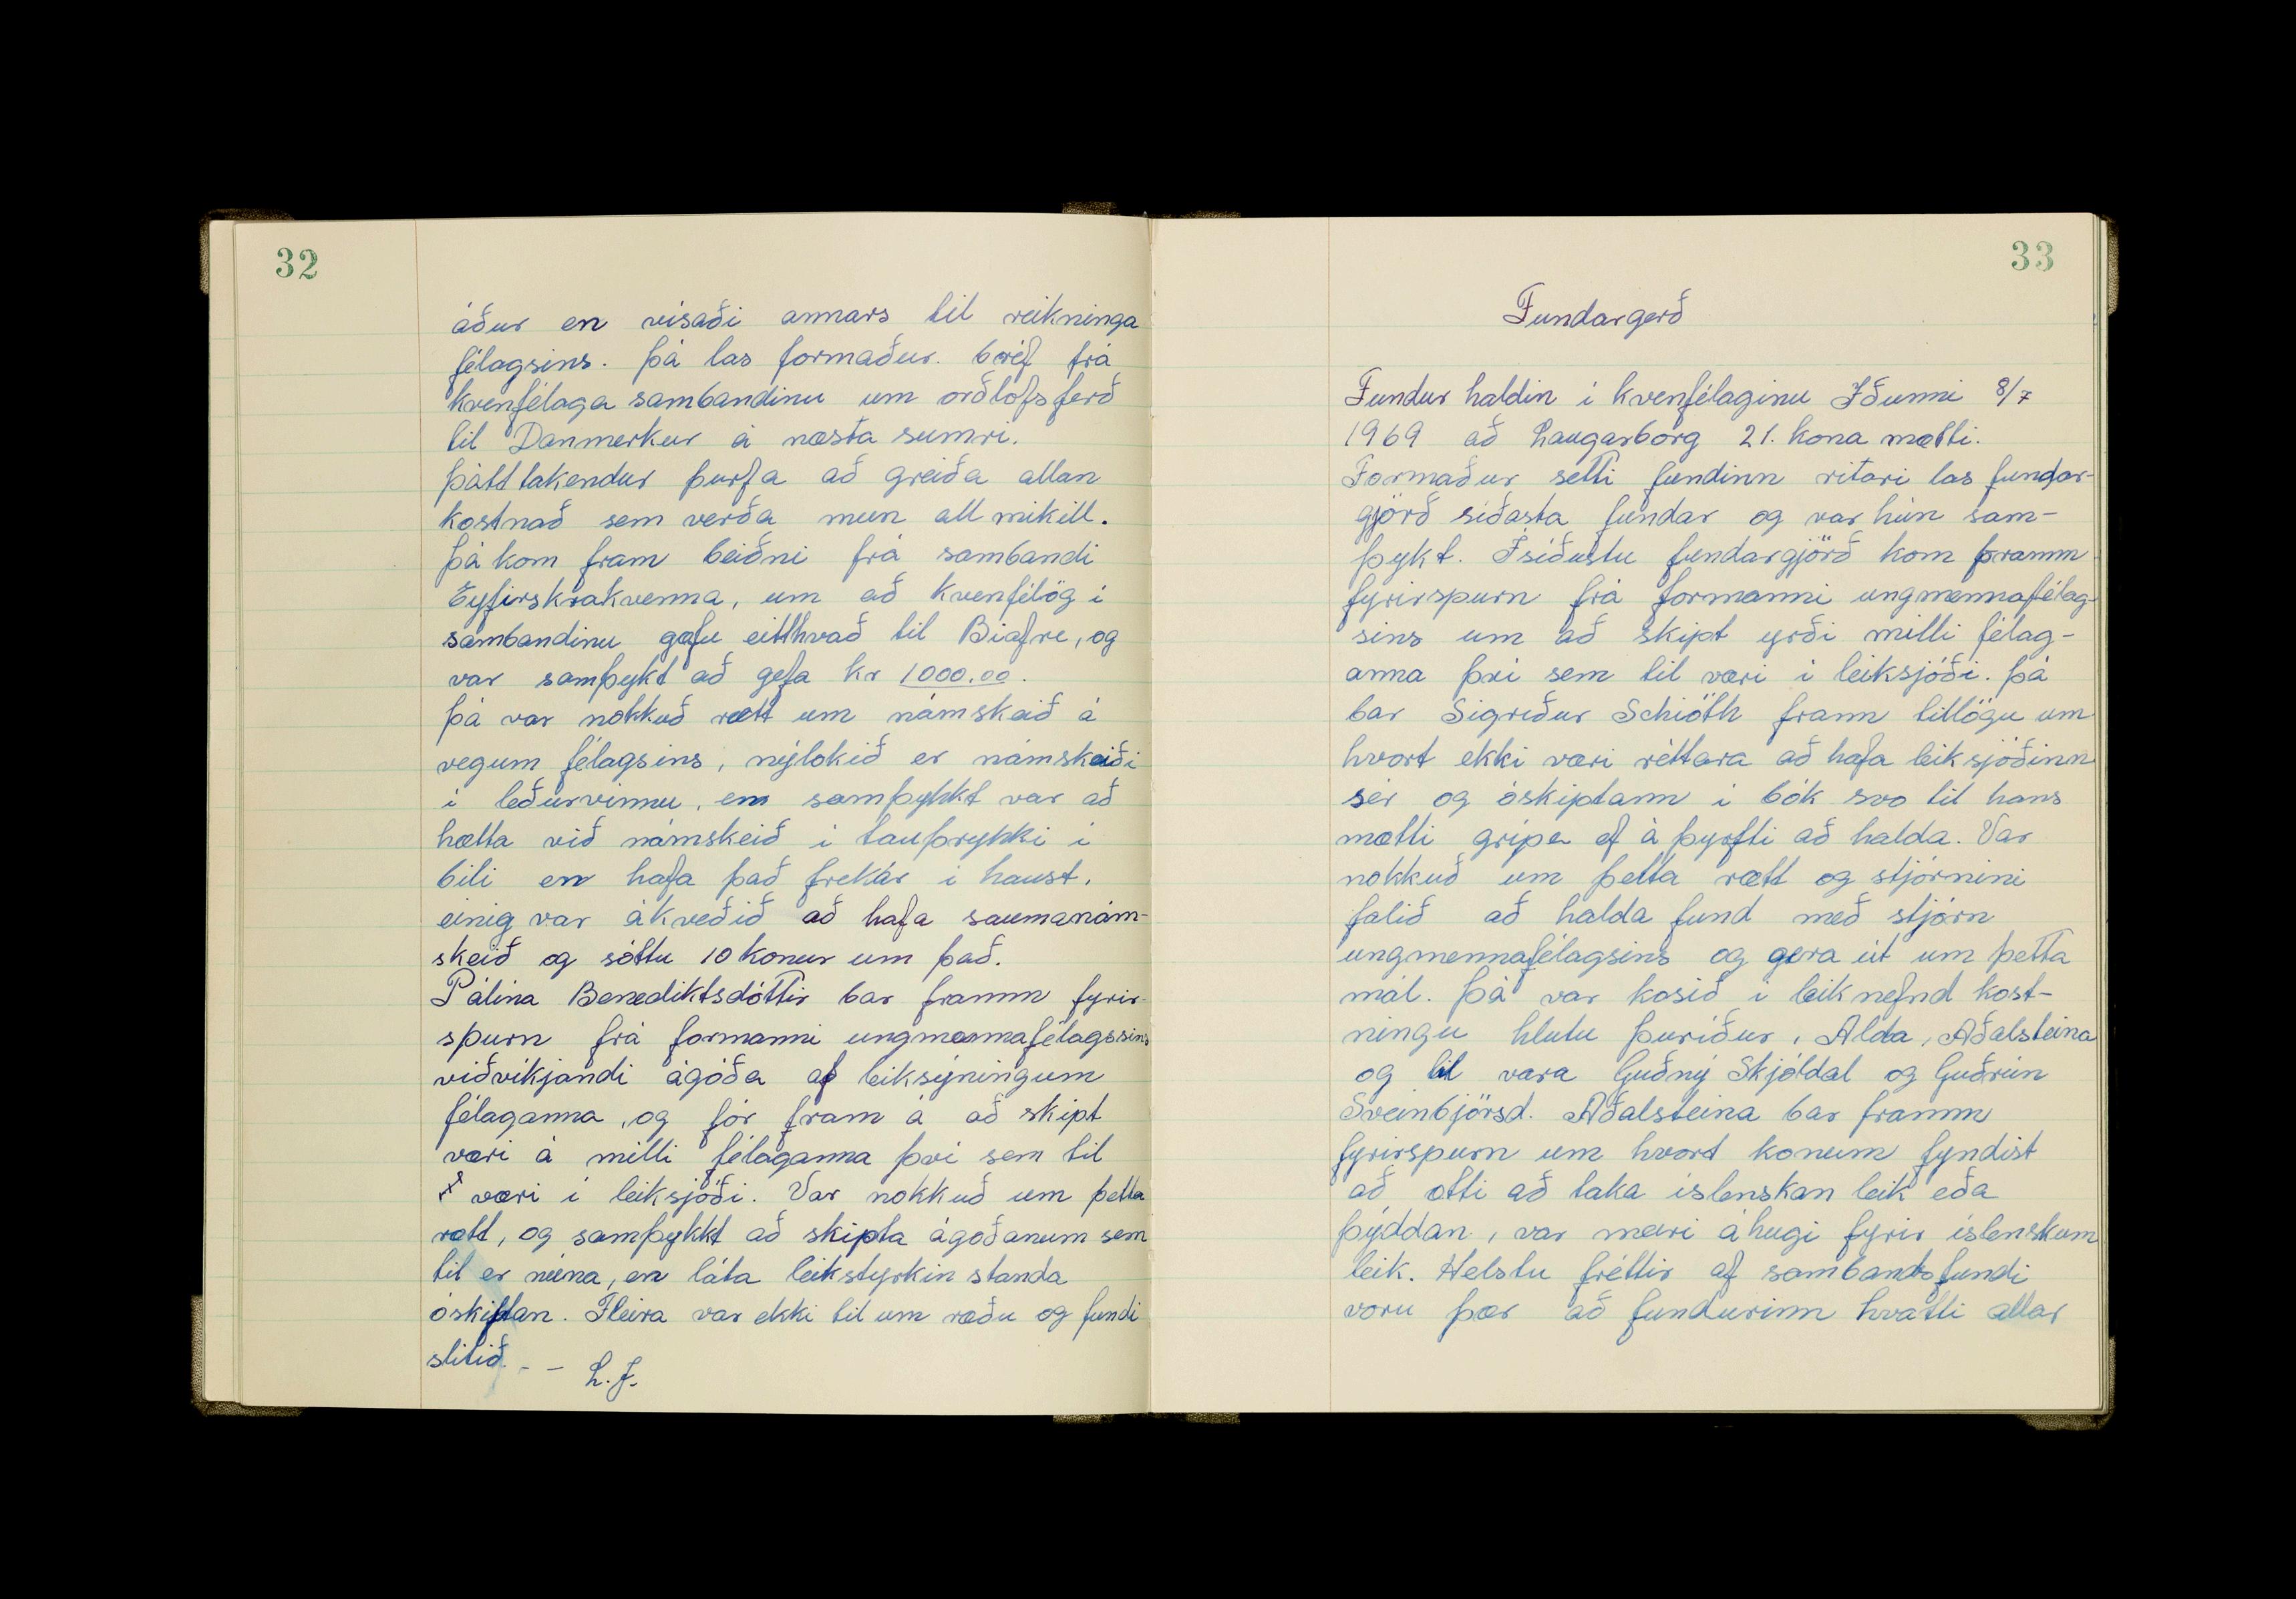 32
áður en vísaði annars til reikninga
félagsins. Þá las formaður bréf frá
kvenfélaga sambandinu um orðlofsferð
til Danmerkur á næsta sumri.
Þátttakendur þurfa að greiða allan
kostnað sem verða mun all mikill.
Þá kom fram beiðni frá sambandi
Eyfirskrakvenna, um að kvenfélög í
sambandinu gæfu eitthvað til Biafre, og
var samþykt að gefa kr 1000.00.
Þá var nokkuð rætt um námskeið á
vegum félagsins, nýlokið er námskeiði
í leðurvinnu, en samþykkt var að
hætta við námskeið í tauþrykki í
bili en hafa það frekar í haust.
einig var ákveðið að hafa saumanám-
skeið og sóttu 10 konur um það.
Pálína Benediktsdóttir bar framm fyrir-
spurn frá formanni ungmennafélagssins
viðvíkjandi ágóða af leiksýningum
félaganna, og fór fram á að skipt
væri á milli félaganna því sem til
væri í leiksjóði. Var nokkuð um þetta
rætt, og samþykkt að skipta ágóðanum sem
til er núna, en láta leikstyrkin standa
óskiftan. Fleira var ekki til um ræðu og fundi
slitið. - - L.J.
33
Fundargerð
Fundur haldin í kvenfélaginu Iðunni 8/7
1969 að Laugarborg 21. kona mætti.
Formaður setti fundinn ritari las fundar-
gjörð síðasta fundar og var hún sam-
þykt. Ísíðustu fundargjörð kom framm
fyrirspurn frá formanni ungmennafélag-
sins um að skipt yrði milli félag-
anna því sem til væri í leiksjóði. Þá
bar Sigríður Schiöth framm tillögu um
hvort ekki væri réttara að hafa leiksjóðinn
sér og óskiptann í bók svo til hans
mætti grípa ef á þyrfti að halda. Var
nokkuð um þetta rætt og stjórnini
falið að halda fund með stjórn
ungmennafélagsins og gera út um þetta
mál. Þá var kosið í leiknefnd kost-
ningu hlutu Þuríður, Alda, Aðalsteina
og til vara Guðný Skjóldal og Guðrún
Sveinbjörsd. Aðalsteina bar framm
fyrirspurn um hvort konum fyndist
að ætti að taka íslenskan leik eða
þýddan, var meiri áhugi fyrir íslenskum
leik. Helstu fréttir af sambandsfundi
voru þær að fundurinn hvatti allar